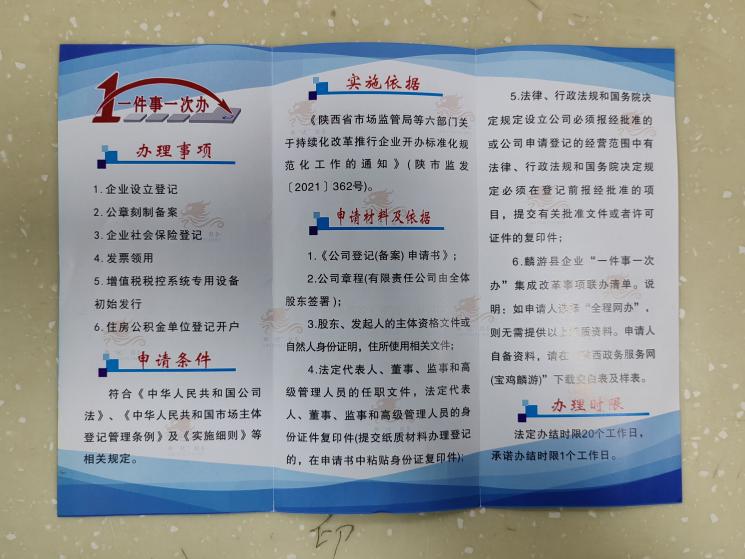 1一件事一次办
办理事项
1.企业设立登记
2.公章刻制备案
3.企业社会保险登记
4.发票领用
5.增值税税控系统专用设备
初始发行
6.住房公积金单位登记开户
申请条件
符合《中华人民共和国公司
法》、《中华人民共和国市场主体
登记管理条例》及《实施细则》等
相关规定。
实施依据
《陕西省市场监管局等六部门关
于持续化改革推行企业开办标准化规
范化工作的通知》(陕市监发
〔2021〕362号)。
申请材料及依据
1.《公司登记(备案)申请书》;
2.公司章程(有限责任公司由全体
股东签署);
3.股东、发起人的主体资格文件或
自然人身份证明,住所使用相关文件;
4.法定代表人、董事、监事和高
级管理人员的任职文件,法定代表
人、董事、监事和高级管理人员的身
份证件复印件(提交纸质材料办理登记
的,在申请书中粘贴身份证复印件);
5.法律、行政法规和国务院决
定规定设立公司必须报经批准的
或公司申请登记的经营范围中有
法律、行政法规和国务院决定规
定必须在登记前报经批准的项
目,提交有关批准文件或者许可
证件的复印件;
6.麟游县企业“一件事一次
办”集成改革事项联办清单。说
明:如申请人选择“全程网办”,
则无需提供以上纸质资料。申请人
自备资料,请在“陕西政务服务网
(宝鸡麟游)”下载空白表及样表。
办理时限
法定办结时限20个工作日,
承诺办结时限1个工作日。
印